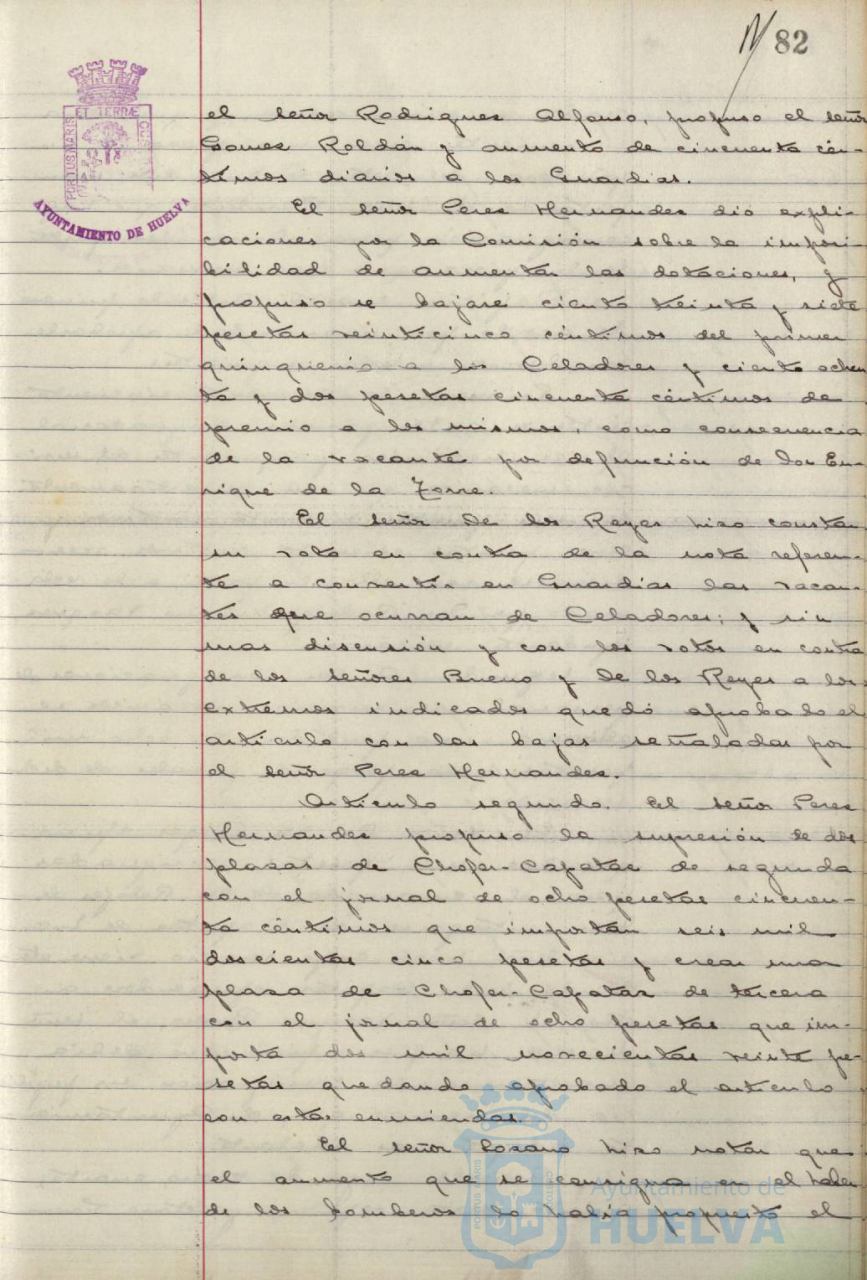 82
PORTUS MARIS ET TERRÆ CUSTODIA
AYUNTAMIENTO DE HUELVA
el señor Rodrigues Alfonso, propuso el señor
Gomes Roldán y aumento de cincuenta cén-
timos diarios a los Guardias.
El señor Peres Hernandes dió expli-
caciones por la Comisión sobre la imposi-
bilidad de aumentar las dotaciones, y
propuso se bajase ciento treinta y siete
pesetas veinticinco céntimos del primer
quinquenio a los Celadores y ciento ochen
ta y dos pesetas cincuenta céntimos de
premio a los mismos, como consecuencia
de la vacante por defunción de don En-
rique de la Torre.
El señor De los Reyes hiso constar
su voto en contra de la nota referen-
te a convertir en Guardias las vacan-
tes que ocurran de Celadores; y sin
mas discusión y con los votos en contra
de los señores Bueno y De los Reyes a los
extremos indicados quedó aprobado el
artículo con las bajas señaladas por
el señor Peres Hernandes.
Artículo segundo. El señor Peres
Hernandes propuso la supresión de dos
plasas de Chofer-Capatas de segunda
con el jornal de ocho pesetas cincuen-
ta céntimos que importan seis mil
doscientas cinco pesetas y crear una
plasa de Chofer-Capatas de tercera
con el jornal de ocho pesetas que im-
porta dos mil novecientas veinte pe-
setas quedando aprobado el artículo
con estas enmiendas.
El señor Losano hiso notar que
el aumento que se consigna en el haber
de los bomberos lo había propuesto el
Ayuntamiento de
HUELVA